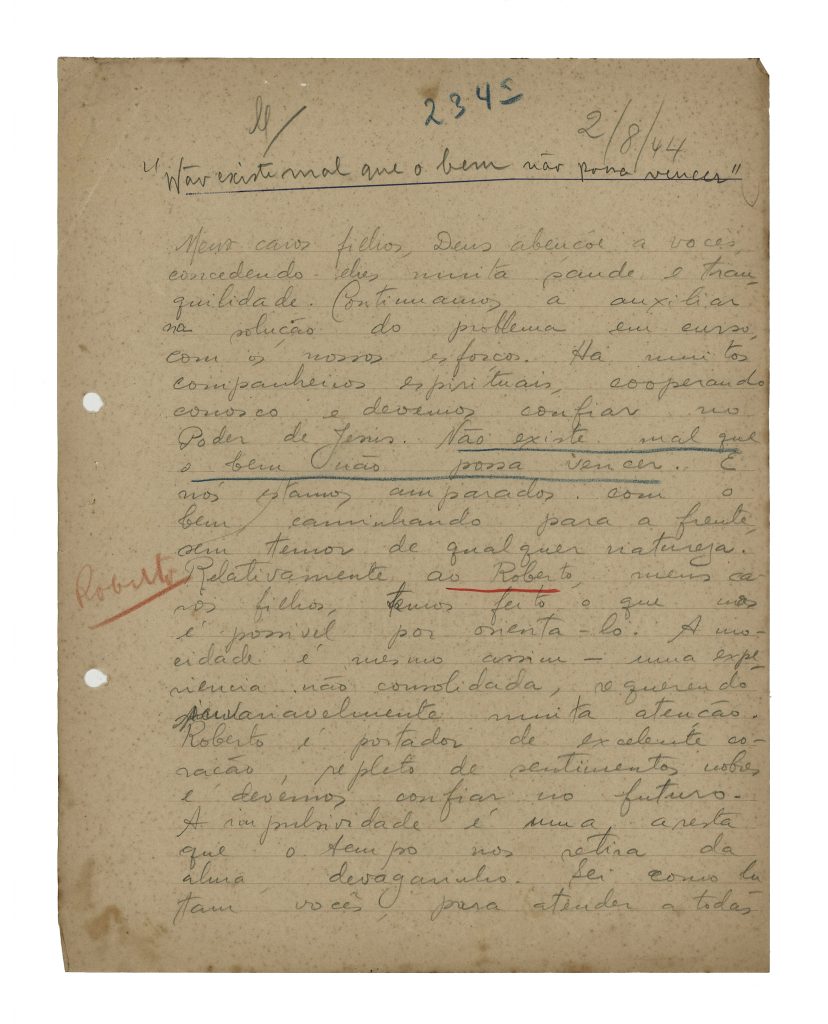 234
2/8/44
"Não existe mal que o bem não possa vencer"
Meus caros filhos, Deus abençõe a vocês,
concedendo-lhes muita saude e tran-
quilidade. Continuamos a auxiliar
na solução do problema em curso,
com os nossos esforços. Há muitos
companheiros espirituais, cooperando
conosco e devemos confiar no
Poder de Jesus. Não existe mal que
o bem não possa vencer. E
nós estamos amparados. com o
bem caminhando para a frente,
sem temor de qualquer natureza.
Roberto
Relativamente ao Roberto, meus ca-
ros filhos, temos feito o que nos
é possivel por orienta-lo. A mo-
cidade é mesmo assim - uma expe-
riencia não consolidada, requerendo
invariavelmente muita atenção.
Roberto é portador de excelente co-
ração, repleto de sentimentos nobres
e devemos confiar no futuro.
A impulsividade é uma aresta
que o tempo nos retira da
alma devagarinho. Sei como lu
tam vocês, para atender a todas